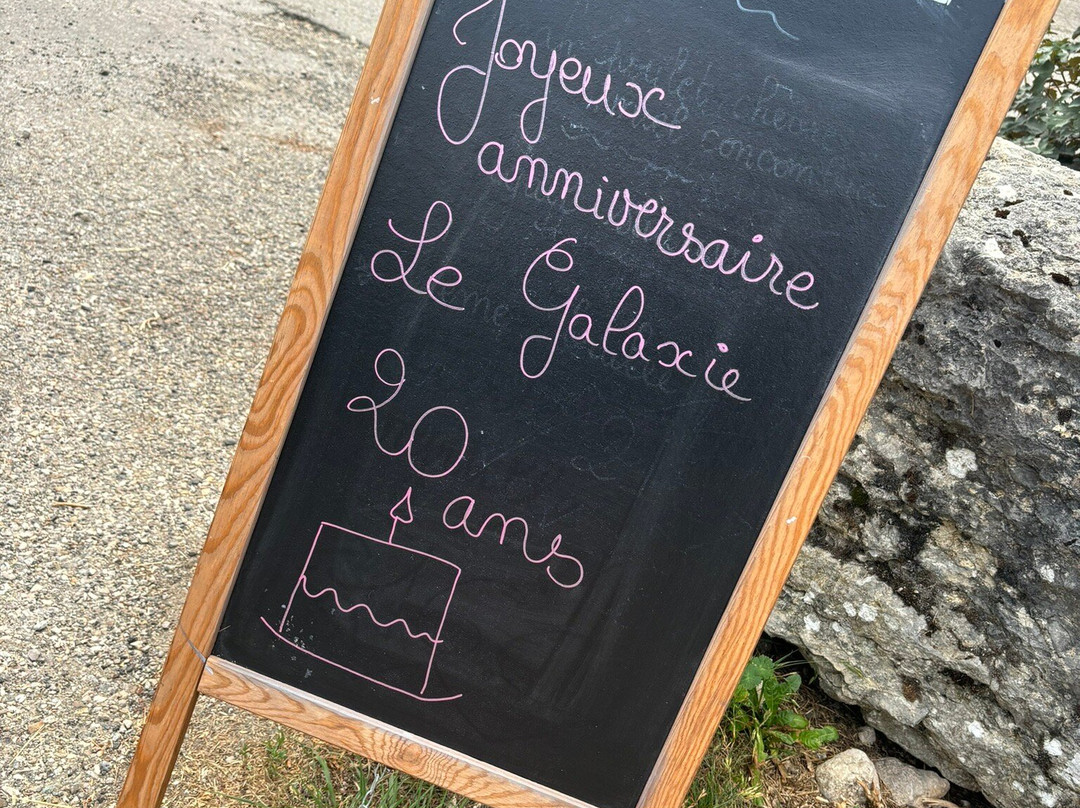 Joyeux
anniversaire
Le Galaxie
20 ans